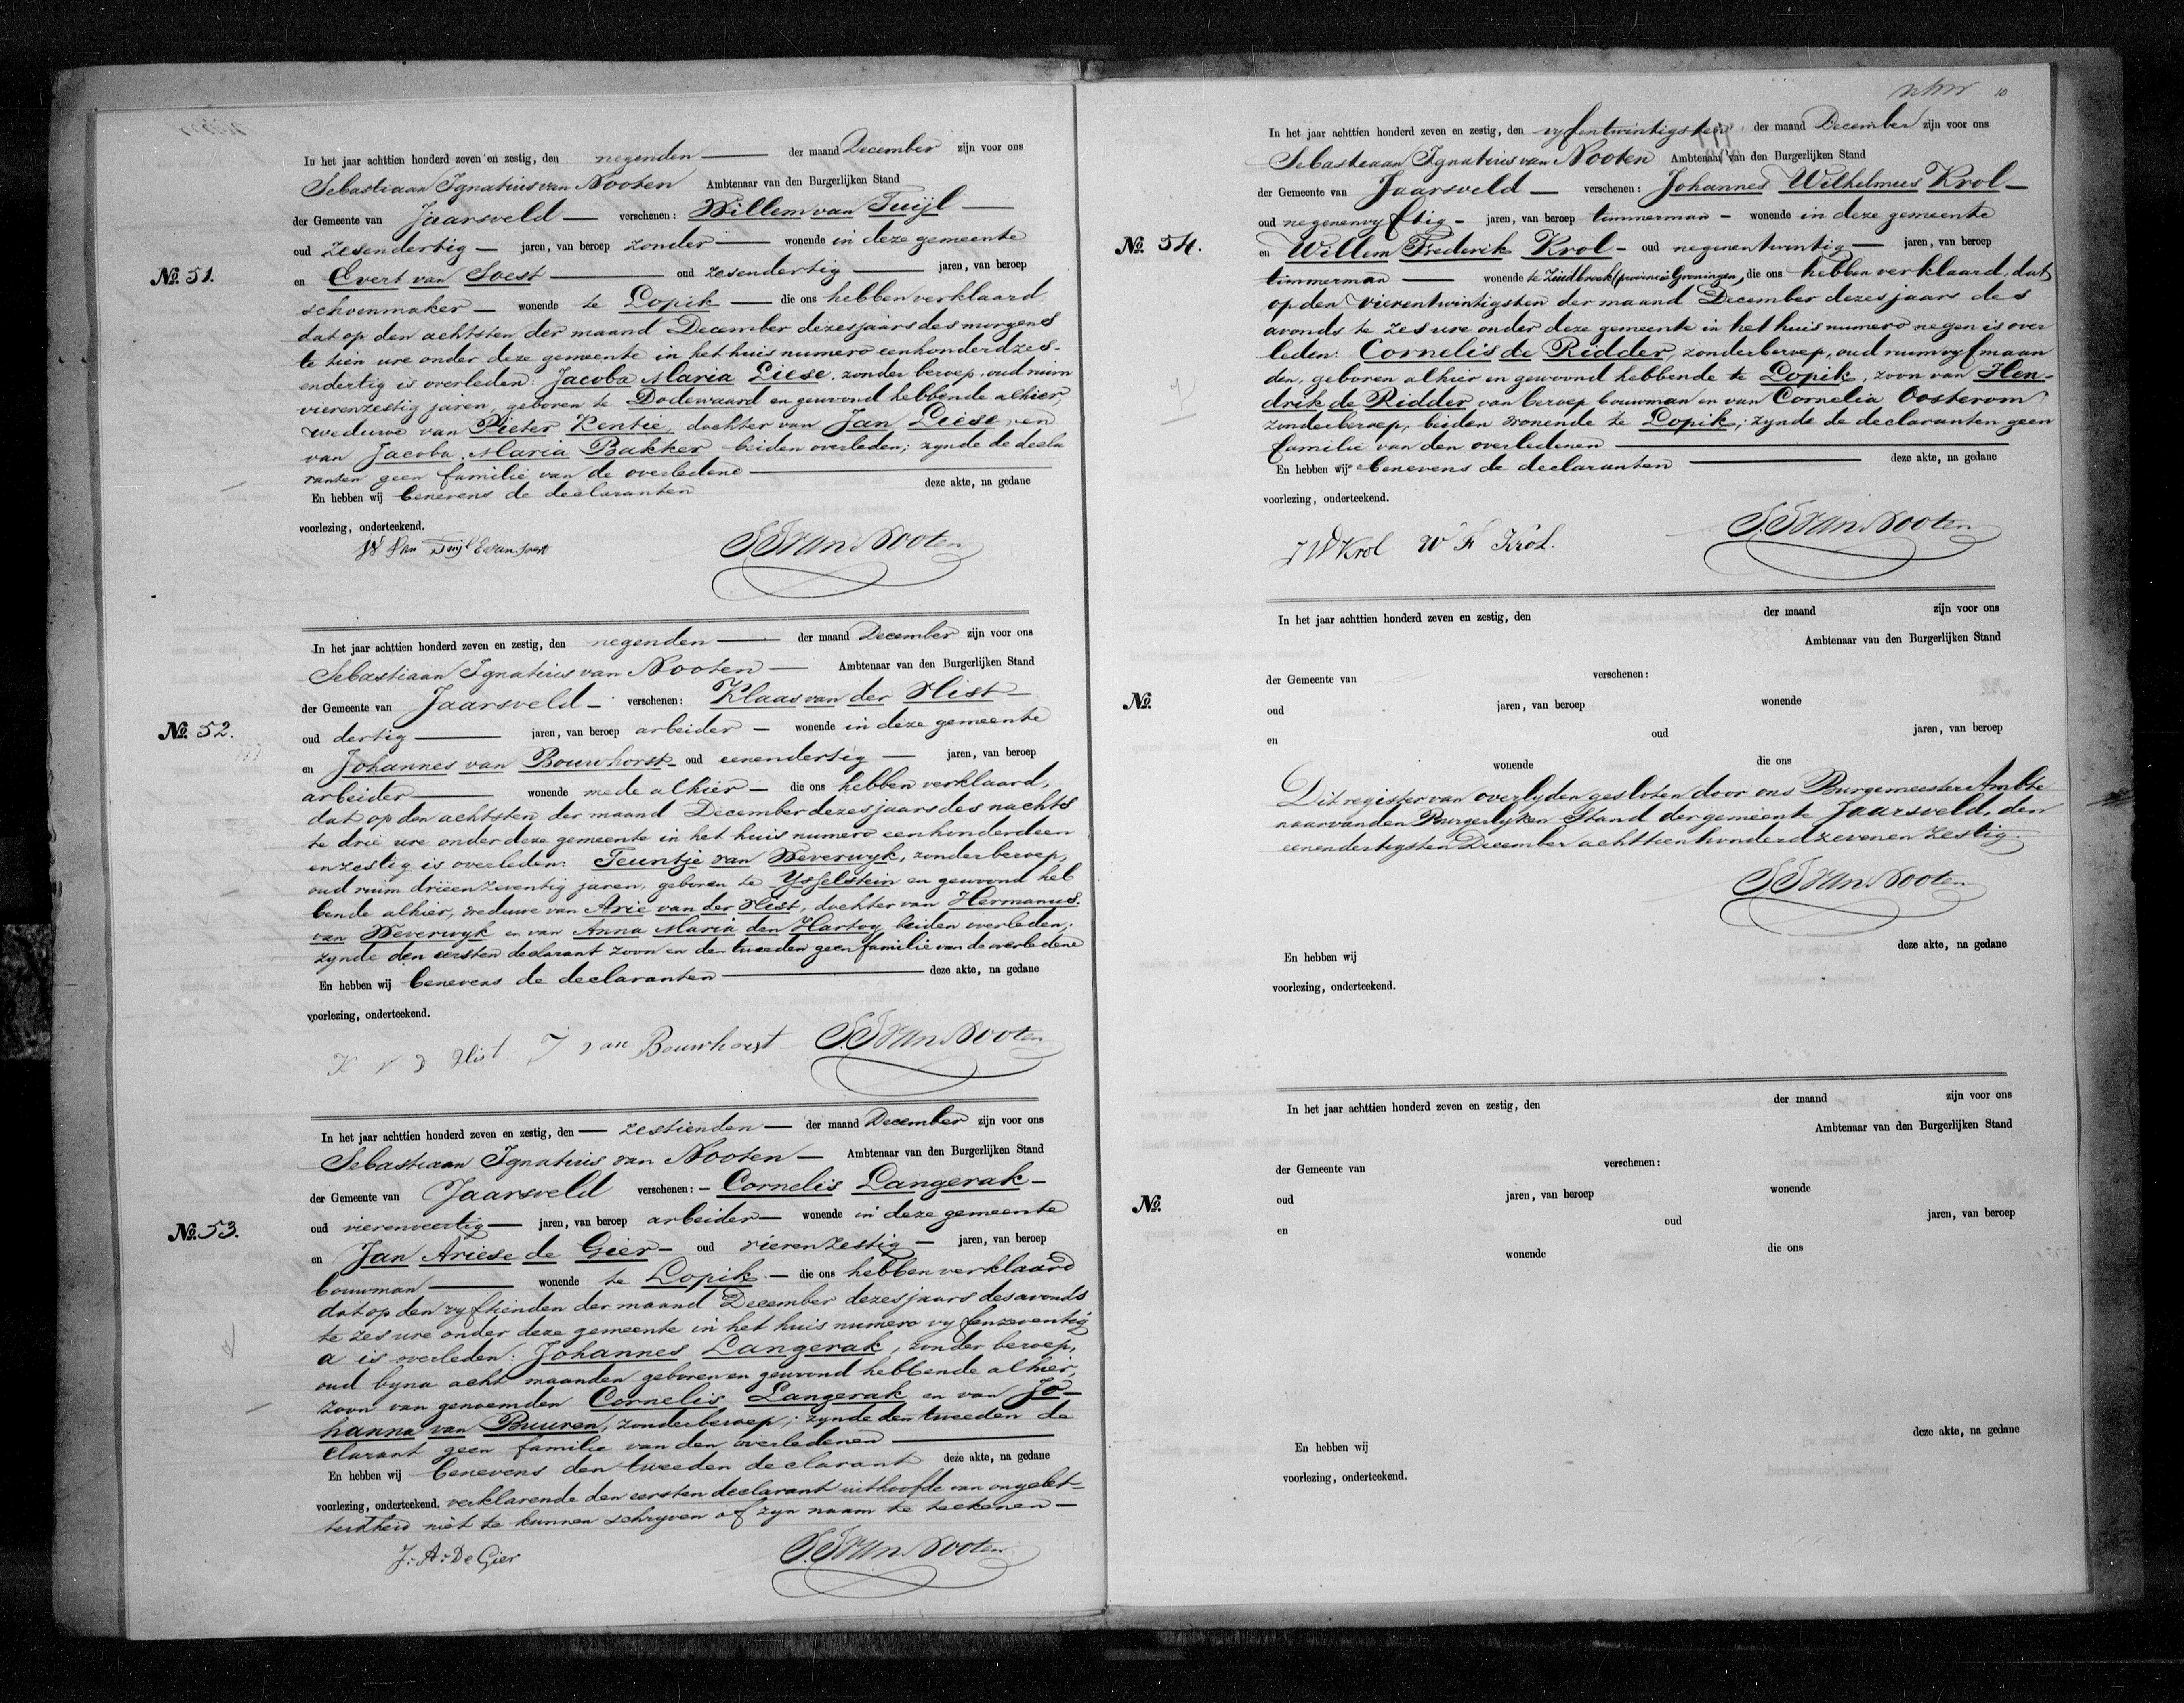 In het jaar achttien honderd zeven en zestig, den negenden der maand December zijn voor ons
Sebastiaan Ignatius van Nooten Ambtenaar van den Burgerlijken Stand
der Gemeente van Jaarsveld verschenen: Willem van Tuijl
oud zesendertig jaren, van beroep zonder wonende in deze gemeente
No. 51.
en Evert van Soest oud zesendertig jaren, van beroep
schoenmaker wonende te Lopik die ons hebben verklaard,
dat op den achtsten der maand December dezes jaars des morgens
te tien ure onder deze gemeente in het huis numero eenhonderdzes-
endertig is overleden: Jacoba Maria Liese, zonder beroep, oud ruim
vierenzestig jaren, geboren te Dodewaard en gewoond hebbende alhier,
weduwe van Pieter Kentie, dochter van Jan Liese, en
van Jacoba Maria Bakker beiden overleden; zynde de decla
ranten geen familie van de overledene
En hebben wij benevens de declaranten deze akte, na gedane
voorlezing, onderteekend.
W Van Tuijl E van soest S. I van Nooten
In het jaar achttien honderd zeven en zestig, den negenden der maand December zijn voor ons
Sebastiaan Ignatius van Nooten Ambtenaar van den Burgerlijken Stand
der Gemeente van Jaarsveld verschenen: Klaas van der Hist
No. 52.
oud dertig jaren, van beroep arbeider wonende in deze gemeente
en Johannes van Bouwhorst oud eenendertig jaren, van beroep
arbeider wonende mede alhier die ons hebben verklaard,
dat op den achtsten der maand December dezes jaars des nachts
te drie ure onder deze gemeente in het huis numero eenhonderdeen
enzestig is overleden: Teuntje van Weverwyk, zonder beroep,
oud ruim drieenzeventig jaren, geboren te Ysselstein en gewoond heb
bende alhier, weduwe van Arie van der Hist, dochter van Hermanus
van Weverwyk en van Anna Maria den Hartog beiden overleden;
zynde den eersten declarant zoon en den tweeden geen familie van de overledene
En hebben wij benevens de declaranten deze akte, na gedane
voorlezing, onderteekend.
K v d Hist J van Bouwhorst S. I van Nooten
In het jaar achttien honderd zeven en zestig, den zestienden der maand December zijn voor ons
Sebastiaan Ignatius van Nooten Ambtenaar van den Burgerlijken Stand
der Gemeente van Jaarsveld verschenen: Cornelis Langerak
No. 53.
oud vierenveertig jaren, van beroep arbeider wonende in deze gemeente
en Jan Ariese de Gier oud vierenzestig jaren, van beroep
bouwman wonende te Lopik die ons hebben verklaard
dat op den vyftienden der maand December dezes jaars des avonds
te zes ure onder deze gemeente in het huis numero vyfenzeventig
a is overleden: Johannes Langerak, zonder beroep,
oud byna acht maanden geboren en gewoond hebbende alhier,
zoon van genoemden Cornelis Langerak en van Jo-
hanna van Buuren, zonder beroep; zynde den tweeden de
clarant geen familie van den overledenen
En hebben wij benevens den tweeden declarant deze akte, na gedane
voorlezing, onderteekend. verklarende den eersten declarant uithoofde van ongelet-
terdheid niet te kunnen schryven of zyn naam te teekenen
J. A. De Gier S. I van Nooten
10
In het jaar achttien honderd zeven en zestig, den vyfentwintigsten der maand December zijn voor ons
Sebastiaan Ignatius van Nooten Ambtenaar van den Burgerlijken Stand
der Gemeente van Jaarsveld verschenen: Johannes Wilhelmus Krol
oud negenenvyftig jaren, van beroep timmerman wonende in deze gemeente
No. 54.
en Willem Frederik Krol oud negenentwintig jaren, van beroep
timmerman wonende te Zuidbroek (provincie Groningen), die ons hebben verklaard, dat
op den vierentwintigsten der maand December dezes jaars des
avonds te zes ure onder deze gemeente in het huis numero negen is over
leden: Cornelis de Ridder, zonder beroep, oud ruim vyf maan
den, geboren alhier en gewoond hebbende te Lopik, zoon van Hen-
drik de Ridder van beroep bouwman en van Cornelia Oosterom
zonder beroep, beiden wonende te Lopik; zynde de declaranten geen
familie van den overledenen
En hebben wij benevens de declaranten deze akte, na gedane
voorlezing, onderteekend.
J W Krol W F Krol. S. I van Nooten
In het jaar achttien honderd zeven en zestig, den der maand zijn voor ons
Ambtenaar van den Burgerlijken Stand
der Gemeente van verschenen:
No.
oud jaren, van beroep wonende
en oud jaren, van beroep
wonende die ons
Dit register van overlyden gesloten door ons Burgemeester Ambte
naar van den Burgerlyken Stand der gemeente Jaarsveld, den
eenendertigsten December achttienhonderd zeven en zestig.
S. I van Nooten
En hebben wij deze akte, na gedane
voorlezing, onderteekend.
In het jaar achttien honderd zeven en zestig, den der maand zijn voor ons
Ambtenaar van den Burgerlijken Stand
der Gemeente van verschenen:
No.
oud jaren, van beroep wonende
en oud jaren, van beroep
wonende die ons
En hebben wij deze akte, na gedane
voorlezing, onderteekend.